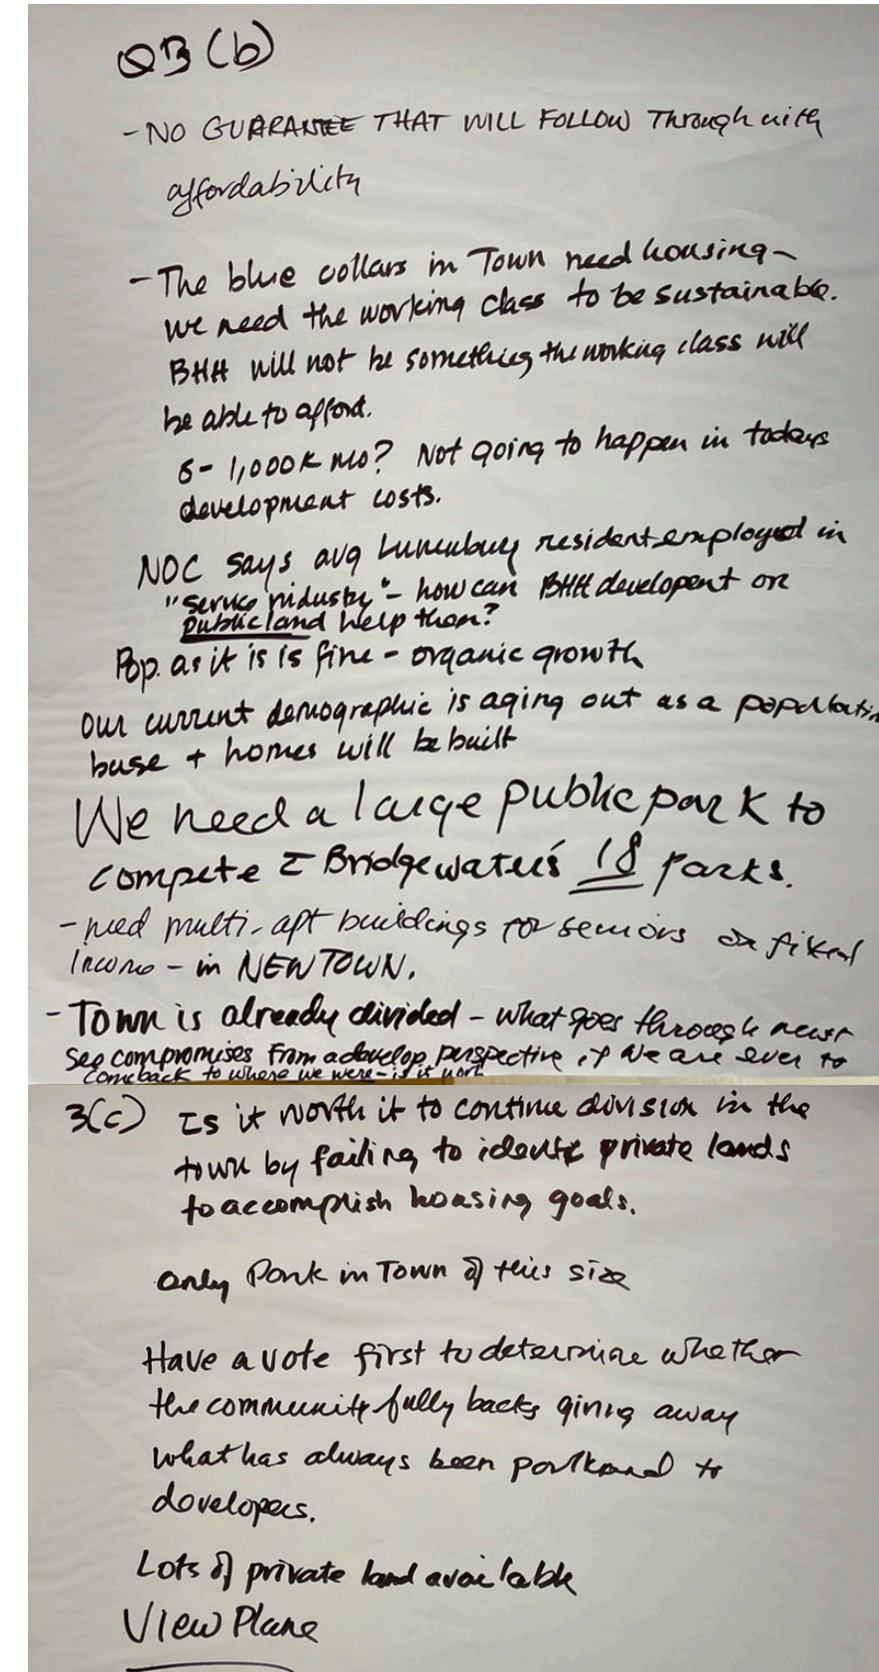 Q3 (b)
- NO GUARANTEE THAT WILL FOLLOW Through with
affordability
- The blue collars in Town need housing -
we need the working class to be sustainable.
BHH will not be something the working class will
be able to afford.
1,000K mo? Not going to happen in todays
development costs.
NOC says avg Lunenburg resident employed in
"service industry" - how can BHH developent on
public land help them?
Pop. as it is is fine - organic growth
Our current demographic is aging out as a population
base + homes will be built
We need a large public park to
compete c Bridgewater's 18 parks.
- need multi-apt buildings for seniors on fixed
Income - in NEW TOWN.
- Town is already divided - what goes through must
see compromises from a develop. perspective if we are ever to
come back to where we were - is it wort
3(c) Is it worth it to continue division in the
town by failing to identify private lands
to accomplish housing goals.
only Park in Town of this size
Have a vote first to determine whether
the community fully backs giving away
what has always been parkland to
developers.
Lots of private land available
View Plane